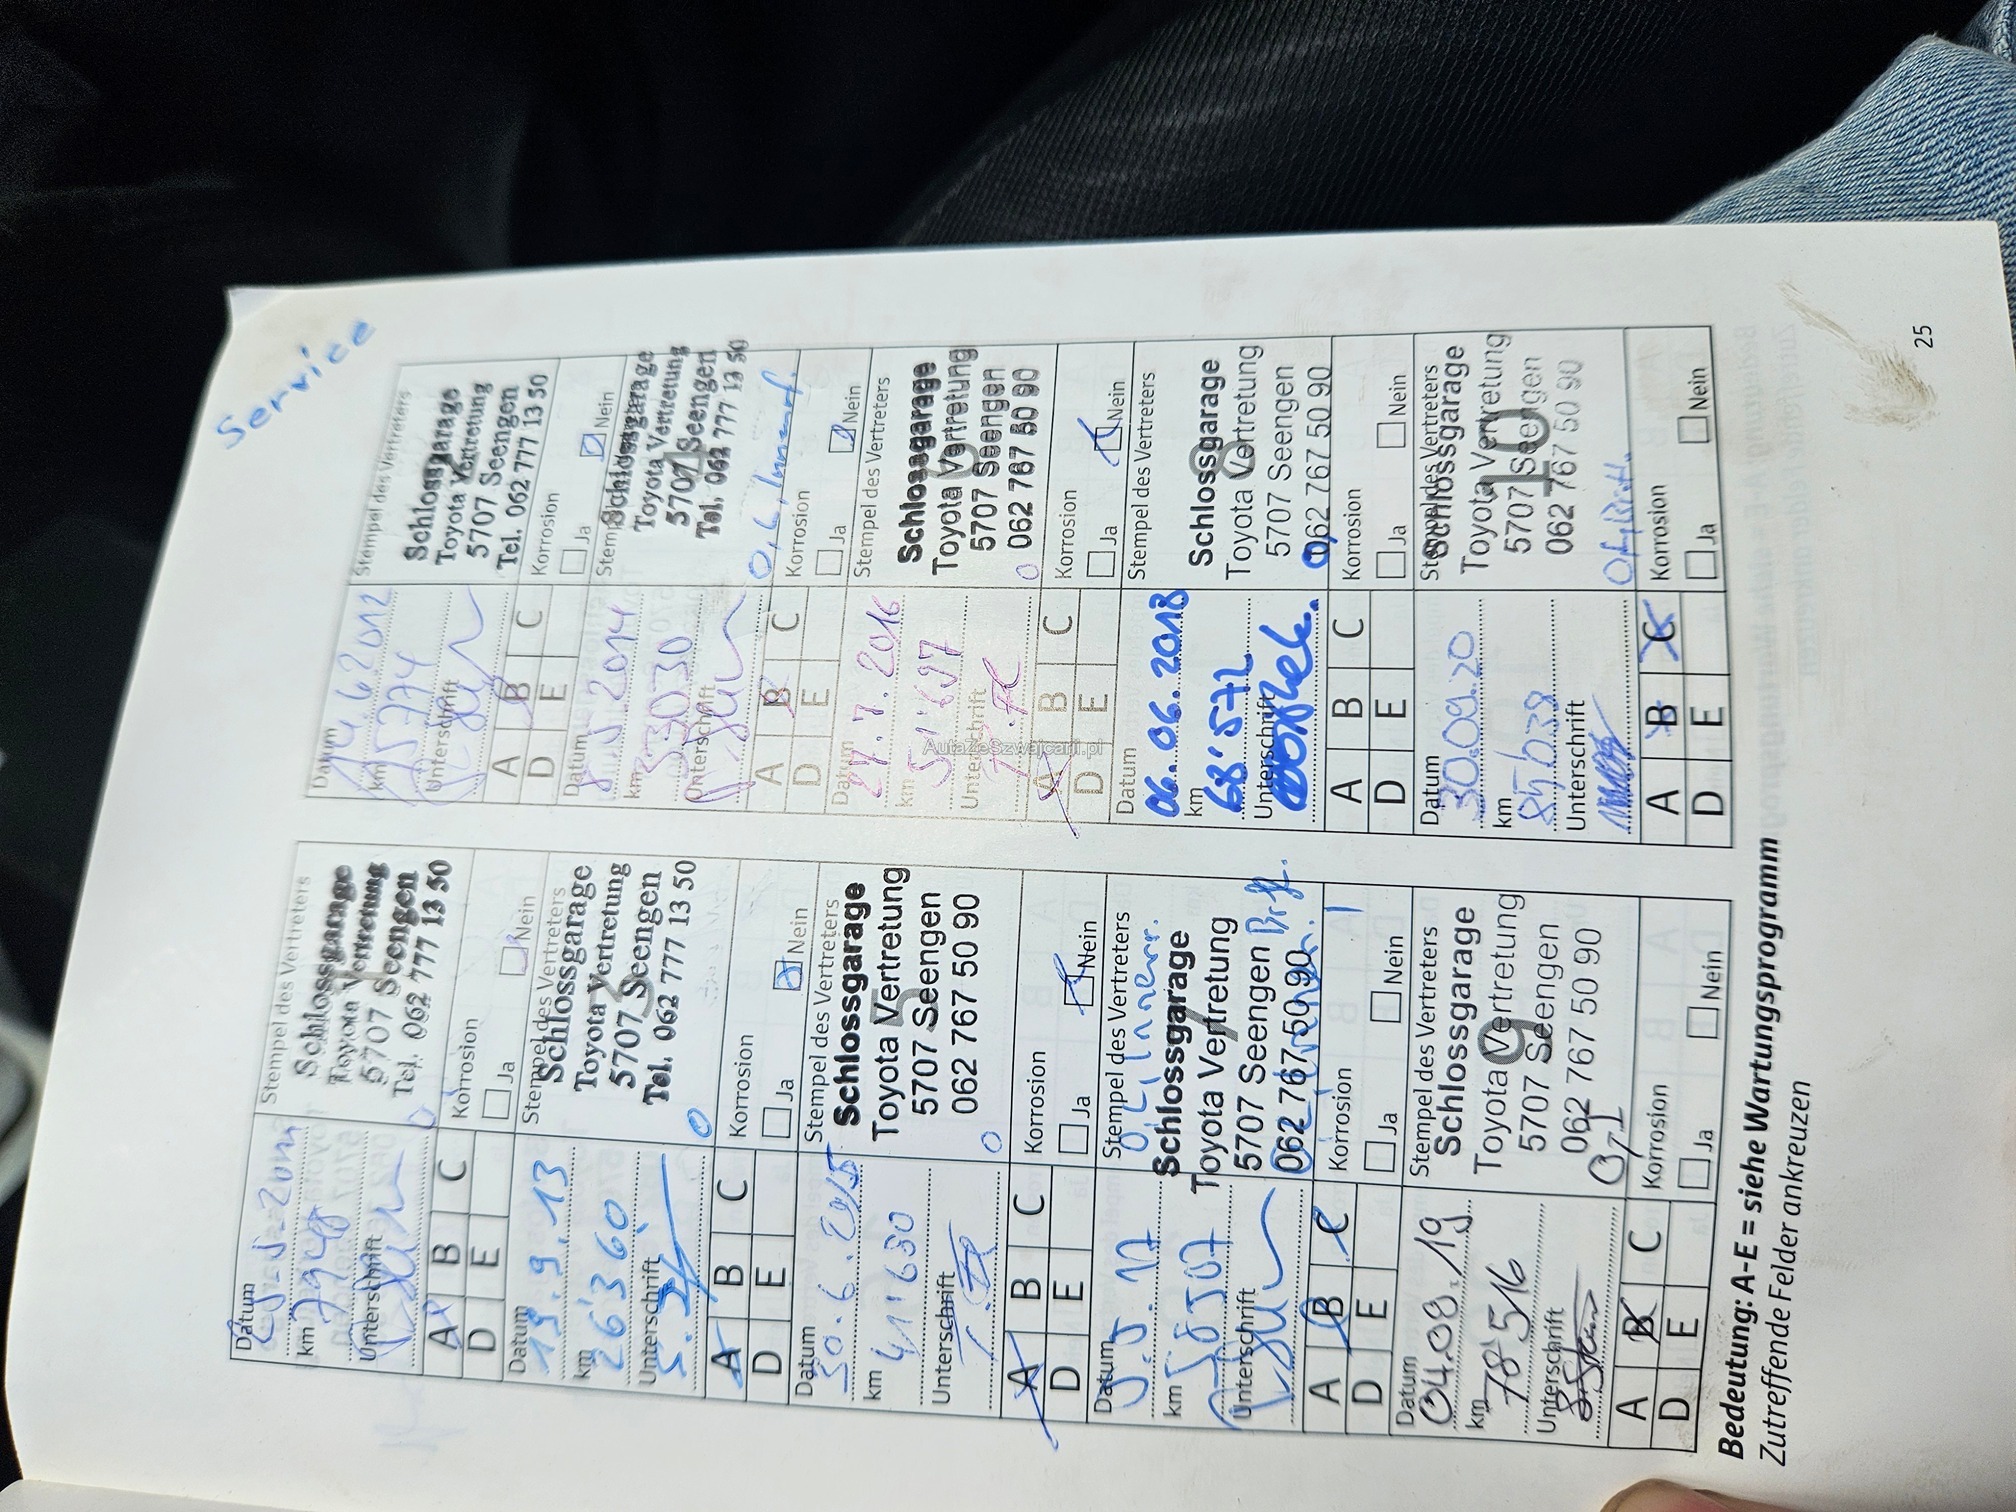 Service
Datum
Stempel des Vertreters
Schlossgarage
Toyota Vertretung
5707 Seengen
Tel. 062 777 13 50
km 7948
Unterschrift
A B C
D E
Korrosion
Ja Nein
Datum
14 6 2012
Stempel des Vertreters
Schlossgarage
Toyota Vertretung
5707 Seengen
Tel. 062 777 13 50
km 15774
Unterschrift
A B C
D E
Korrosion
Ja Nein
Datum
19.9.13
Stempel des Vertreters
3
Schlossgarage
Toyota Vertretung
5707 Seengen
Tel. 062 777 13 50
km
26'360
Unterschrift
0
A B C
D E
Korrosion
Ja Nein
Datum
8.5.2014
Stempel
Schlossgarage
Toyota Vertretung
5707 Seengen
Tel. 062 777 13 50
km
33030
Unterschrift
A B C
D E
Korrosion
Ja Nein
Datum
30.6.2015
Stempel des Vertreters
5
Schlossgarage
Toyota Vertretung
5707 Seengen
062 767 50 90
km 41'630
Unterschrift
0
A B C
D E
Korrosion
Ja Nein
Datum
27.7.2016
Stempel des Vertreters
6
Schlossgarage
Toyota Vertretung
5707 Seengen
062 767 50 90
km 51'697
Unterschrift
0
A B C
D E
Korrosion
Ja Nein
Datum
Stempel des Vertreters
7
Schlossgarage
Toyota Vertretung
5707 Seengen
062 767 50 90
km
Unterschrift
A B C
D E
Korrosion
Ja Nein
Datum
06.06.2018
Stempel des Vertreters
8
Schlossgarage
Toyota Vertretung
5707 Seengen
062 767 50 90
km
68'572
Unterschrift
A B C
D E
Korrosion
Ja Nein
Datum
04.09.19
Stempel des Vertreters
9
Schlossgarage
Toyota Vertretung
5707 Seengen
062 767 50 90
km 78'516
Unterschrift
A B C
D E
Korrosion
Ja Nein
Datum
30.09.20
Stempel des Vertreters
10
Schlossgarage
Toyota Vertretung
5707 Seengen
062 767 50 90
km 85'639
Unterschrift
A B C
D E
Korrosion
Ja Nein
AutaZeSzwajcarii.pl
Bedeutung: A-E = siehe Wartungsprogramm
Zutreffende Felder ankreuzen
25